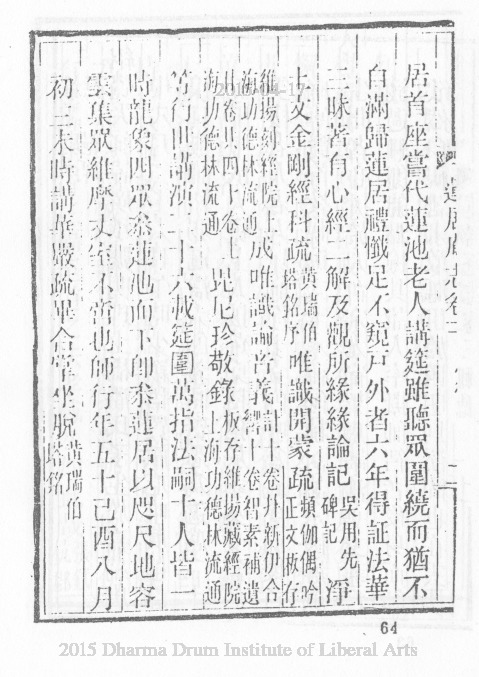 蓮居庵志卷
居首座嘗代蓮池老人講筵雖聽眾圍繞而猶不
自滿歸蓮居禮懺足不窺戶外者六年得証法華
三昧著有心經二解及觀所緣緣論記吳用先碑記淨
土文金剛經科疏黃瑞伯塔銘序唯識開蒙疏頻伽偶吟正文板存
維揚刻經院上海功德林流通成唯識論音義計十卷廿新伊合響十卷智素補遺
廿卷共四十卷上海功德林流通毘尼珍敬錄板存維揚藏經院上海功德林流通
等行世講演二十六載筵圍萬指法嗣十人皆一
時龍象四眾叅蓮池而下卽叅蓮居以咫尺地容
雲集眾維摩丈室不啻也師行年五十己酉八月
初三未時講華嚴疏畢合掌坐脫黃瑞伯塔銘
64
2015 Dharma Drum Institute of Liberal Arts